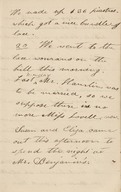 We made up $20 parties,
which got a nice bundle of
20. We went to the
hill this morning.
Last, Ms. Hamlin was
to be married, so we
suppose there is no
more Miss Lovell.
Susan and Eliza came
out this afternoon to
spend the night at
Mr. Benjamin's.